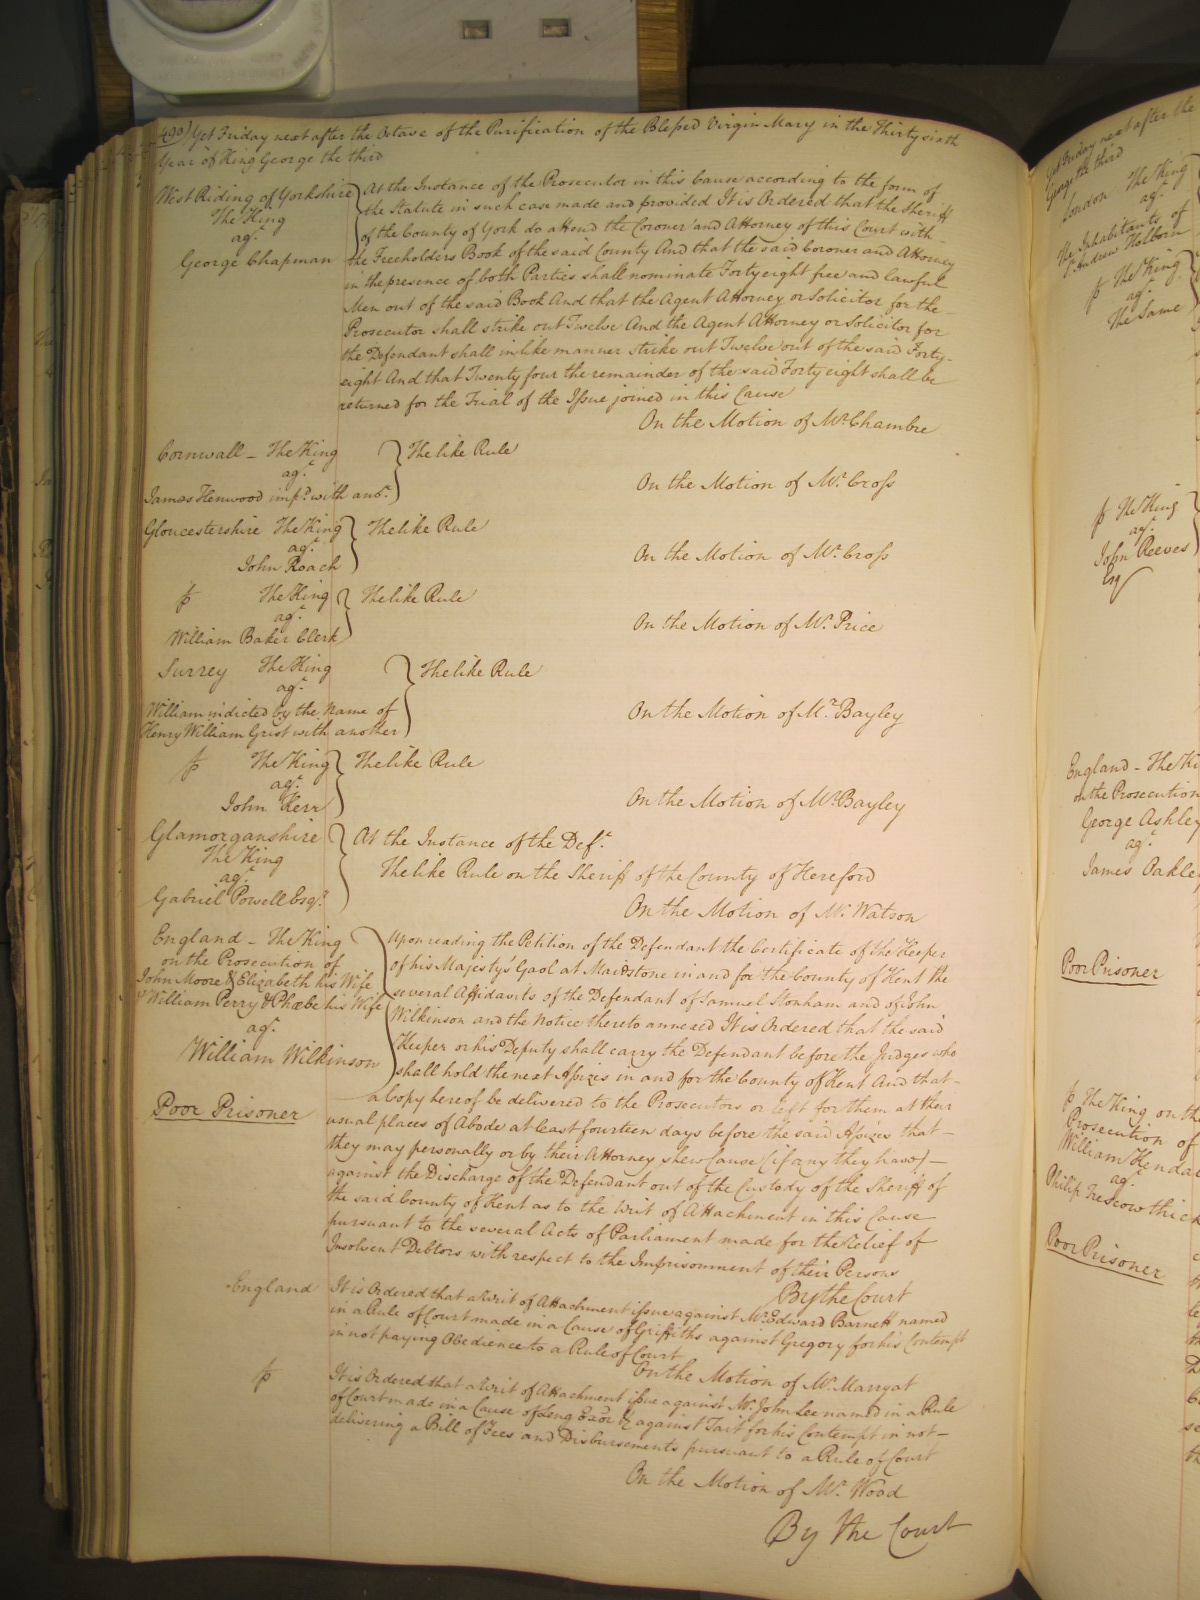 490) Yet Friday next after the Octave of the Purification of the Blessed Virgin Mary in the Thirty sixth
Year of King George the third
West Riding of Yorkshire
The King
agt.
George Chapman
At the Instance of the Prosecutor in this Cause according to the form of
the Statute in such case made and provided It is Ordered that the Sheriff
of the County of York do attend the Coroner and Attorney of this Court with
the Freeholders Book of the said County And that the said Coroner and Attorney
in the presence of both Parties shall nominate Forty eight free and lawful
Men out of the said Book And that the Agent Attorney or Solicitor for the
Prosecutor shall strike out Twelve And the Agent Attorney or Solicitor for
the Defendant shall in like manner strike out Twelve out of the said Forty-
eight And that Twenty four the remainder of the said Forty eight shall be
returned for the Trial of the Issue joined in this Cause
On the Motion of Mr. Chambre
Cornwall - The King
agt.
James Henwood imp.d with anor.
The like Rule
On the Motion of Mr. Cross
Gloucestershire The King
agt.
John Roach
The like Rule
On the Motion of Mr. Cross
The King
agt.
William Baker Clerk
The like Rule
On the Motion of Mr. Price
Surrey The King
agt.
William indicted by the Name of
Henry William Grist with another
The like Rule
On the Motion of Mr. Bayley
The King
agt.
John Kerr
The like Rule
On the Motion of Mr. Bayley
Glamorganshire
The King
agt.
Gabriel Powell Esqr.
At the Instance of the Deft.
The like Rule on the Sheriff of the County of Hereford
On the Motion of Mr. Watson
England - The King
on the Prosecution of
John Moore & Elizabeth his Wife
& William Perry & Phœbe his Wife
agt.
William Wilkinson
Poor Prisoner
Upon reading the Petition of the Defendant the Certificate of the Keeper
of his Majesty's Gaol at Maidstone in and for the County of Kent the
several Affidavits of the Defendant of Samuel Stonham and of John
Wilkinson and the Notice thereto annexed It is Ordered that the said
Keeper or his Deputy shall carry the Defendant before the Judges who
shall hold the next Assizes in and for the County of Kent And that -
a Copy hereof be delivered to the Prosecutors or left for them at their
usual places of Abode at least fourteen days before the said Assizes that -
they may personally or by their Attorney shew Cause (if any they have) -
against the Discharge of the Defendant out of the Custody of the Sheriff of
the said County of Kent as to the Writ of Attachment in this Cause
pursuant to the several Acts of Parliament made for the Relief of
Insolvent Debtors with respect to the Imprisonment of their Persons
By the Court
England
It is Ordered that a Writ of Attachment issue against Mr. Edward Barnett named
in a Rule of Court made in a Cause of Griffiths against Gregory for his Contempt
in not paying Obedience to a Rule of Court
On the Motion of Mr. Marryat
It is Ordered that a Writ of Attachment issue against Mr. John Lee named in a Rule
of Court made in a Cause of Leng Exor. & against Tait for his Contempt in not -
delivering a Bill of Fees and Disbursements pursuant to a Rule of Court
On the Motion of Mr. Wood
By the Court
Yet Friday next after the
George the third
London The King
agt.
The Inhabitants of
St. Andrew Holborn
The King
agt.
The Same
The King
agt.
John Reeves
Esq
England - The Ki
on the Prosecution
George Ashley
agt.
James Oakle
Poor Prisoner
The King on th
Prosecution of
William Kendal
agt.
Philip Trescowthick
Poor Prisoner